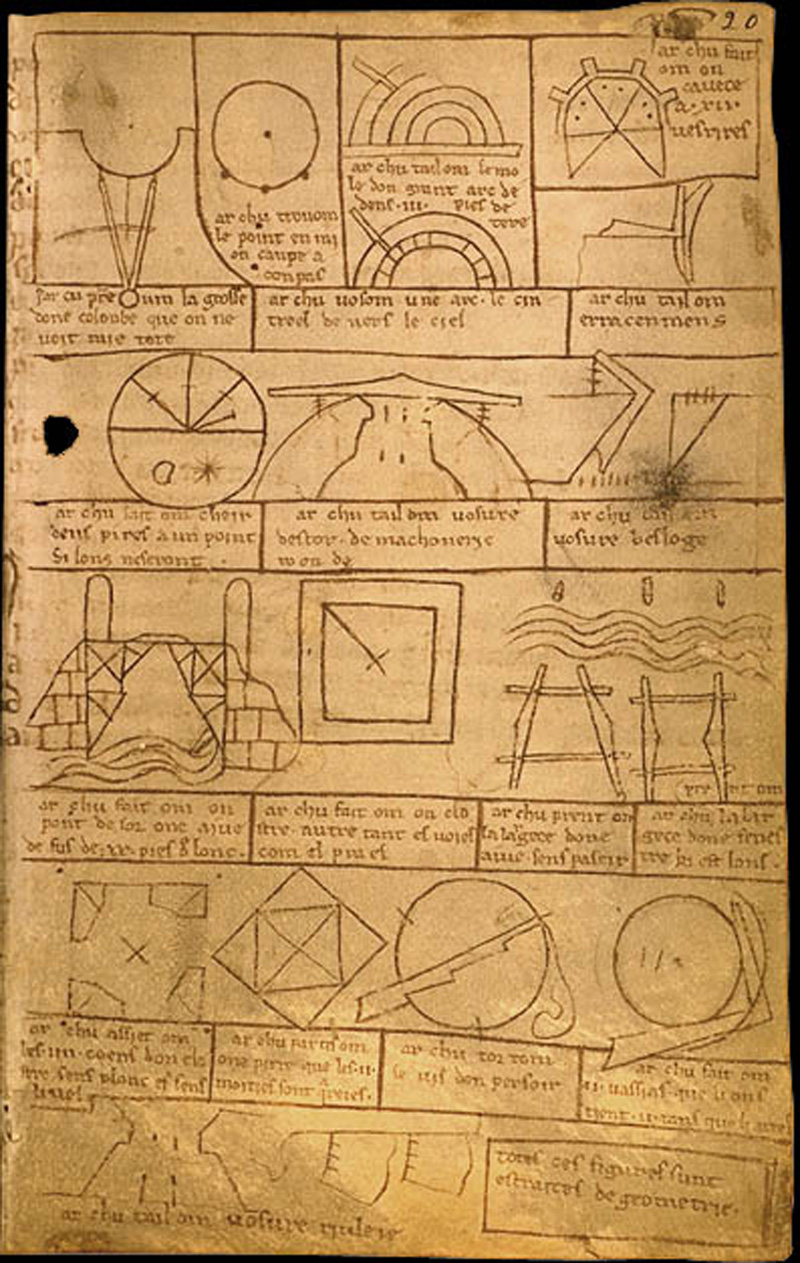 20
ar chu fait
om on
cavece
a .xii.
vesrires
ar chu tail om le mo
le don grant arc de
dens .iii. pies de
tere
ar chu trovom
le point en mi
on canpe a
conpas
par cu prent om la grosse
done colonbe que on ne
voit mie tote
ar chu vosom une arc le cin
treel de vers le ciel
ar chu tail om
erracemens
ar chu fait om cheir
deus pires a un point
si lons ne seront
ar chu tail om vosure
destor de machonerie
roonde
ar chu tail om
vosure besloge
ar chu fait om on
pont desor one aive
de fus de .xx. pies de lonc
ar chu fait om on clo
stre autre tant es voies
com el prael
prent om
ar chu prent om
la largece done
aive sens paseir
ar chu la lar
gece done fenes
tre ki est lons
ar chu assiet om
les .iiii. coens don clo
stre sens plonc et sens
livel
ar chu partis om
one pirre que les .ii.
moities sont quareies
ar chu tor tom
le vis don persoir
ar chu fait om
.ii. vassias que li ons
tient .ii. tans que li atres
ar chu tail om vosure riuleie
totes ces figures sunt
estraites de geometrie.